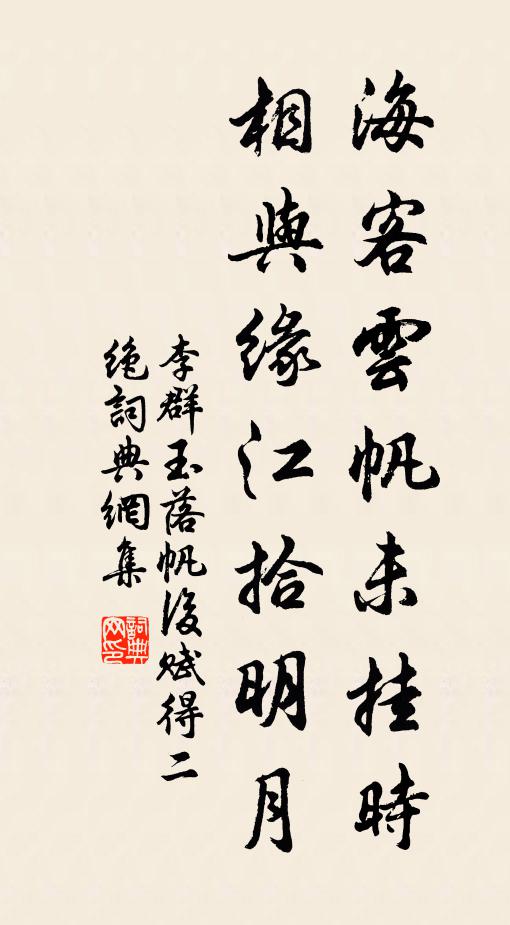 海客雲帆未挂時
相與緣江拾明月
李群玉落帆後賦得二
絶詞典網集
詞典
网印